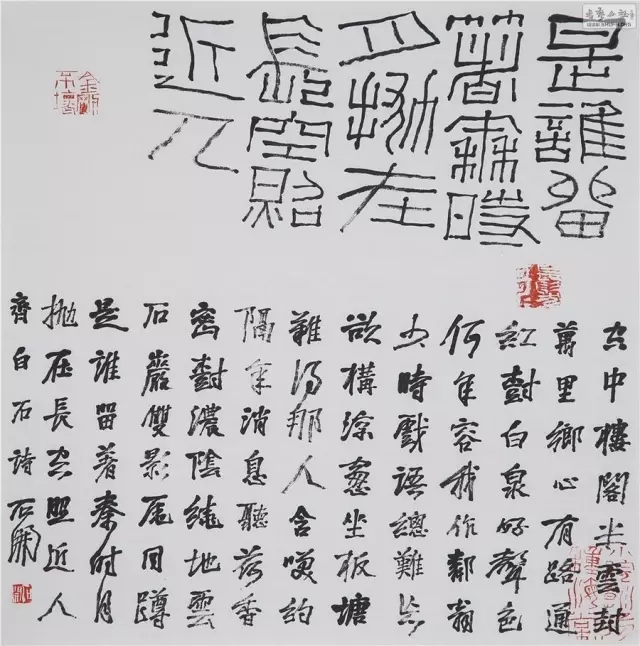 是誰留
著秦時
月抛在
長空照
近人
空中樓閣半雲封
萬里鄉心有路通
紅樹白泉好聲色
何年容我作鄰翁
少時戲語總難忘
欲構涼窗坐板塘
難得那人含笑約
隔年消息聽荷香
密樹濃陰繞地雲
石巖雙影尾回蹲
是誰留著秦時月
抛在長空照近人
齊白石詩 石開